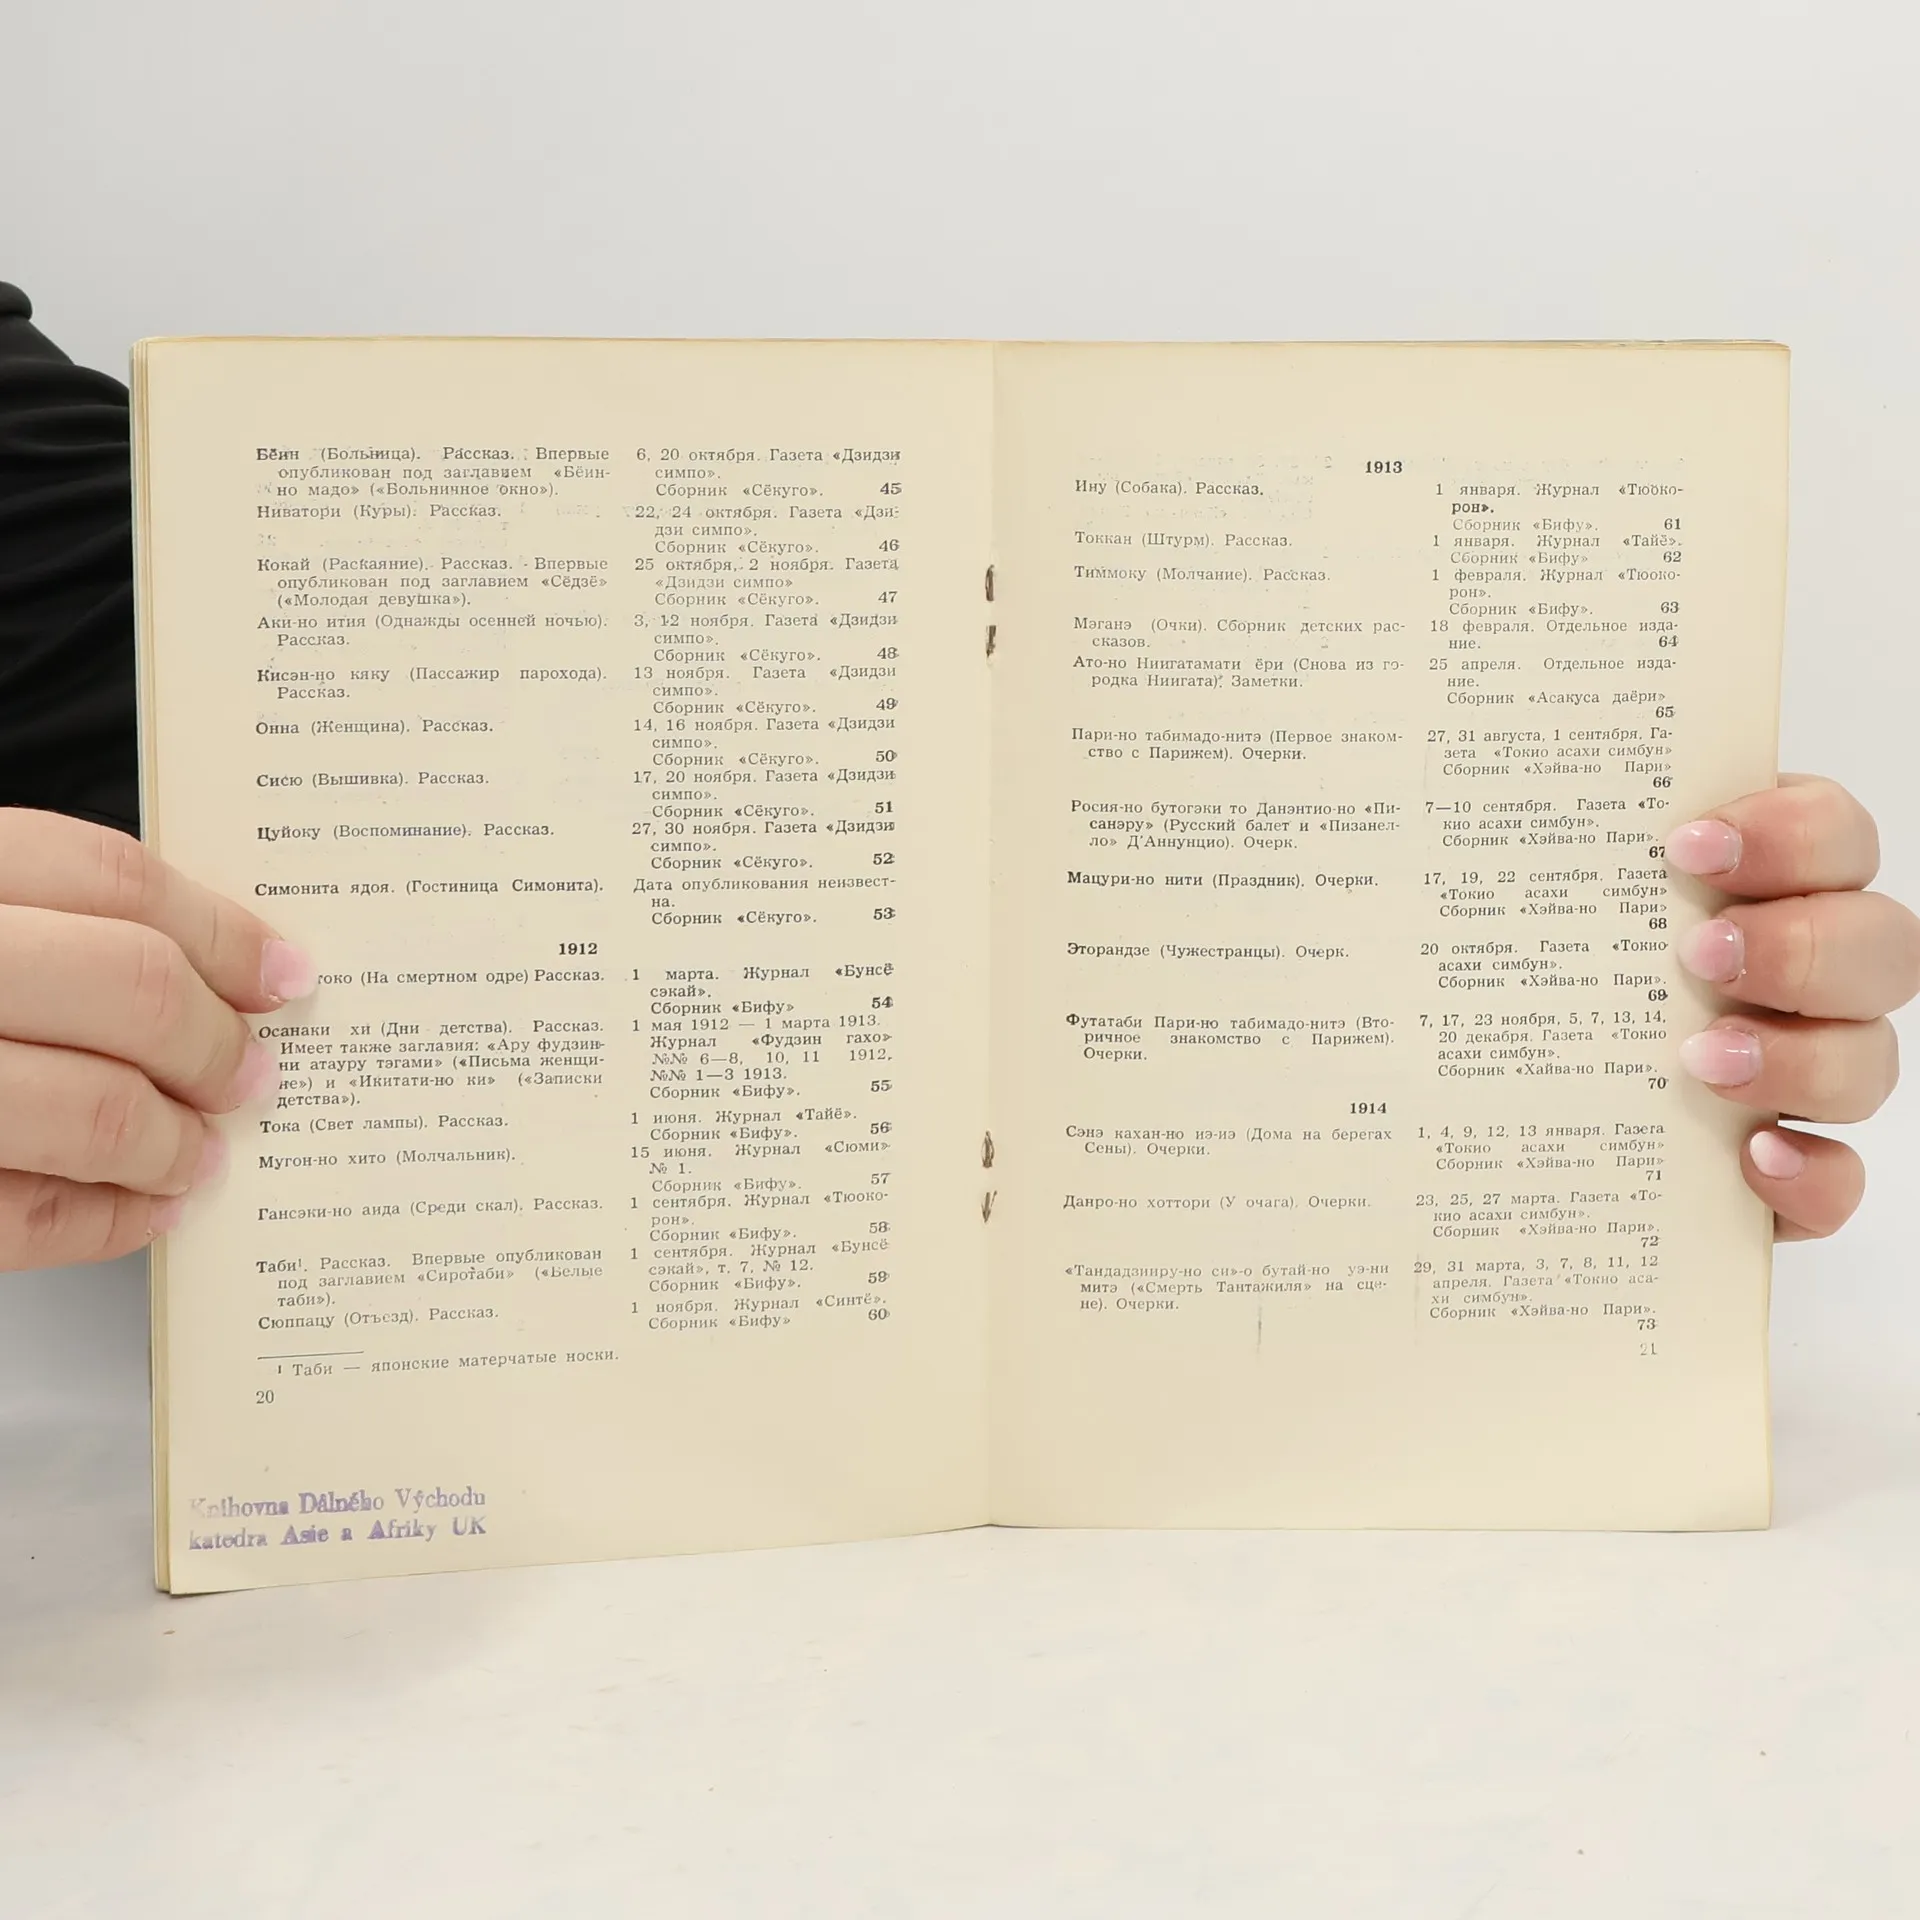 Бёин (Больница). Рассказ. Впервые
опубликован под заглавием «Бёин-
но мадо» («Больничное окно»).
6, 20 октября. Газета «Дзидзи
симпо».
Сборник «Сёкуго». 45
Ниватори (Куры). Рассказ.
22, 24 октября. Газета «Дзи-
дзи симпо».
Сборник «Сёкуго». 46
Кокай (Раскаяние). Рассказ. Впервые
опубликован под заглавием «Сёдзё»
(«Молодая девушка»).
25 октября, 2 ноября. Газета
«Дзидзи симпо»
Сборник «Сёкуго». 47
Аки-но ития (Однажды осенней ночью).
Рассказ.
3, 12 ноября. Газета «Дзидзи
симпо».
Сборник «Сёкуго». 48
Кисэн-но кяку (Пассажир парохода).
Рассказ.
13 ноября. Газета «Дзидзи
симпо».
Сборник «Сёкуго». 49
Онна (Женщина). Рассказ.
14, 16 ноября. Газета «Дзидзи
симпо».
Сборник «Сёкуго». 50
Сисю (Вышивка). Рассказ.
17, 20 ноября. Газета «Дзидзи
симпо».
Сборник «Сёкуго». 51
Цуйоку (Воспоминание). Рассказ.
27, 30 ноября. Газета «Дзидзи
симпо».
Сборник «Сёкуго». 52
Симонита ядоя. (Гостиница Симонита).
Дата опубликования неизвест-
на.
Сборник «Сёкуго». 53
1912
токо (На смертном одре) Рассказ.
1 марта. Журнал «Бунсё
сэкай».
Сборник «Бифу» 54
Осанаки хи (Дни детства). Рассказ.
Имеет также заглавия: «Ару фудзин-
ни атауру тэгами» («Письма женщи-
не») и «Икитати-но ки» («Записки
детства»).
1 мая 1912 — 1 марта 1913.
Журнал «Фудзин гахо»
№№ 6—8, 10, 11 1912,
№№ 1—3 1913.
Сборник «Бифу». 55
Тока (Свет лампы). Рассказ.
1 июня. Журнал «Тайё».
Сборник «Бифу». 56
Мугон-но хито (Молчальник).
15 июня. Журнал «Сюми»
№ 1.
Сборник «Бифу». 57
Гансэки-но аида (Среди скал). Рассказ.
1 сентября. Журнал «Тюоко-
рон».
Сборник «Бифу». 58
Таби¹. Рассказ. Впервые опубликован
под заглавием «Сиротаби» («Белые
таби»).
1 сентября. Журнал «Бунсё
сэкай», т. 7, № 12.
Сборник «Бифу». 59
Сюппацу (Отъезд). Рассказ.
1 ноября. Журнал «Синтё».
Сборник «Бифу» 60
¹ Таби — японские матерчатые носки.
20
Knihovna Dálného Východu
katedra Asie a Afriky UK
1913
Ину (Собака). Рассказ.
1 января. Журнал «Тюоко-
рон».
Сборник «Бифу». 61
Токкан (Штурм). Рассказ.
1 января. Журнал «Тайё».
Сборник «Бифу» 62
Тиммоку (Молчание). Рассказ.
1 февраля. Журнал «Тюоко-
рон».
Сборник «Бифу». 63
Мэганэ (Очки). Сборник детских рас-
сказов.
18 февраля. Отдельное изда-
ние. 64
Ато-но Ниигатамати ёри (Снова из го-
родка Ниигата). Заметки.
25 апреля. Отдельное изда-
ние.
Сборник «Асакуса даёри»
65
Пари-но табимадо-нитэ (Первое знаком-
ство с Парижем). Очерки.
27, 31 августа, 1 сентября. Га-
зета «Токио асахи симбун»
Сборник «Хэйва-но Пари»
66
Росия-но бутогэки то Данэнтио-но «Пи-
санэру» (Русский балет и «Пизанел-
ло» Д'Аннунцио). Очерк.
7—10 сентября. Газета «То-
кио асахи симбун».
Сборник «Хэйва-но Пари».
67
Мацури-но нити (Праздник). Очерки.
17, 19, 22 сентября. Газета
«Токио асахи симбун»
Сборник «Хэйва-но Пари»
68
Эторандзе (Чужестранцы). Очерк.
20 октября. Газета «Токио
асахи симбун».
Сборник «Хэйва-но Пари».
69
Футатаби Пари-но табимадо-нитэ (Вто-
ричное знакомство с Парижем).
Очерки.
7, 17, 23 ноября, 5, 7, 13, 14,
20 декабря. Газета «Токио
асахи симбун».
Сборник «Хайва-но Пари».
70
1914
Сэнэ кахан-но иэ-иэ (Дома на берегах
Сены). Очерки.
1, 4, 9, 12, 13 января. Газета
«Токио асахи симбун»
Сборник «Хэйва-но Пари»
71
Данро-но хоттори (У очага). Очерки.
23, 25, 27 марта. Газета «То-
кио асахи симбун».
Сборник «Хэйва-но Пари».
72
«Тандадзииру-но си»-о бутай-но уэ-ни
митэ («Смерть Тантажиля» на сце-
не). Очерки.
29, 31 марта, 3, 7, 8, 11, 12
апреля. Газета «Токио аса-
хи симбун».
Сборник «Хэйва-но Пари».
73
21